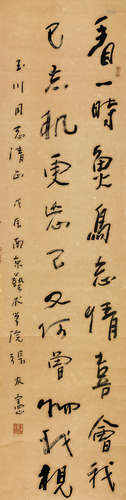 看一時魚鳥忘情喜會我
已忘機更忘己又何曾物我相視
玉川同志清正 戊辰南京藝术学院張友憲